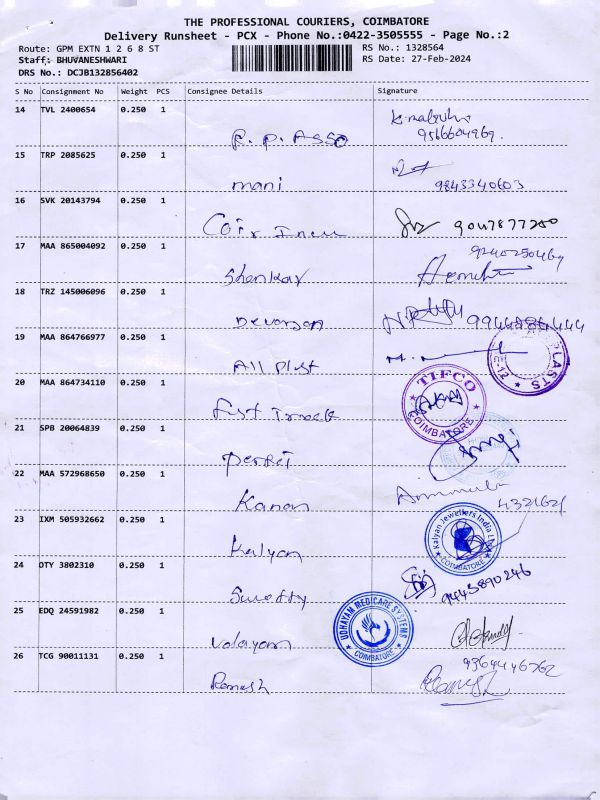 THE PROFESSIONAL COURIERS, COIMBATORE
Delivery Runsheet - PCX - Phone No.:0422-3505555 - Page No.:2
Route: GPM EXTN 1 2 6 8 ST
RS No.: 1328564
Staff: BHUVANESHWARI
RS Date: 27-Feb-2024
DRS No.: DCJB132856402
S No Consignment No Weight PCS Consignee Details Signature
14 TVL 2400654 0.250 1
R.P. ASSO
9566604969.
15 TRP 2085625 0.250 1
mani
9843340603
16 SVK 20143794 0.250 1
Coir
9047877250
17 MAA 865004092 0.250 1
Shenkar
18 TRZ 145006096 0.250 1
Devarson
19 MAA 864766977 0.250 1
All Plast
PLASTS
E-12
20 MAA 864734110 0.250 1
TIFCO
COIMBATORE
21 SPB 20064839 0.250 1
22 MAA 572968650 0.250 1
Kanan
23 IXM 505932662 0.250 1
Kalyan
Kalyan Jewellers India Ltd
COIMBATORE
24 OTY 3802310 0.250 1
Swetty
9443890246
25 EDQ 24591982 0.250 1
UDHAYAM MEDICARE SYSTEMS
COIMBATORE
26 TCG 90011131 0.250 1
Ramesh
9364446762
Ramesh